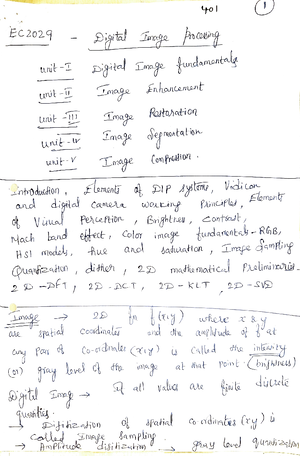 401
1
EC2029 - Digital Image Processing
unit-I Digital Image fundamentals
unit-II Image Enhancement
unit-III Image Restoration
unit-IV Image Segmentation
unit-V Image Compression.
Introduction, Elements of DIP systems, Vidicon
and digital camera working Principles, Elements
of Visual Perception, Brightness, Contrast,
Mach band effect, Color image fundamentals - RGB,
HSI models, Hue and saturation, Image Sampling
Quantization, dither, 2D mathematical Preliminaries.
2D-DFT, 2D-DCT, 2D-KLT, 2D-SVD
Image → 2D fn f(x,y) where x & y
are spatial coordinates and the amplitude of f at
any pair of co-ordinates (x,y) is called the intensity
(or) gray level of the image at that point. (brightness)
Digital Image → If all values are finite discrete
quantities.
→ Digitization of spatial coordinates (x,y) is
called Image sampling.
→ Amplitude digitization → gray level quantization